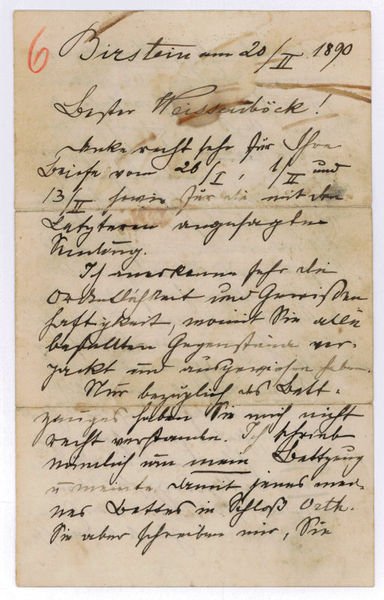 6
Birstein am 20/II 1890
Bester Weissenböck!
Danke recht sehr für Ihre
Briefe vom 26/I, 1/II und
13/II sowie für die mit den
Letzteren angesagte
Sendung.
Ich anerkenne sehr die
Ordentlichkeit und Gewissen
haftigkeit, womit Sie alle
bestellten Gegenstände ver-
packt und ausgewiesen haben.
Nur bezüglich des Bett-
zeuges haben Sie mich nicht
recht verstanden. Ich schrieb
nämlich um mein Bettzeug
u meinte damit jenes mei-
nes Bettes in Schloß Orth.
Sie aber schreiben mir, Sie